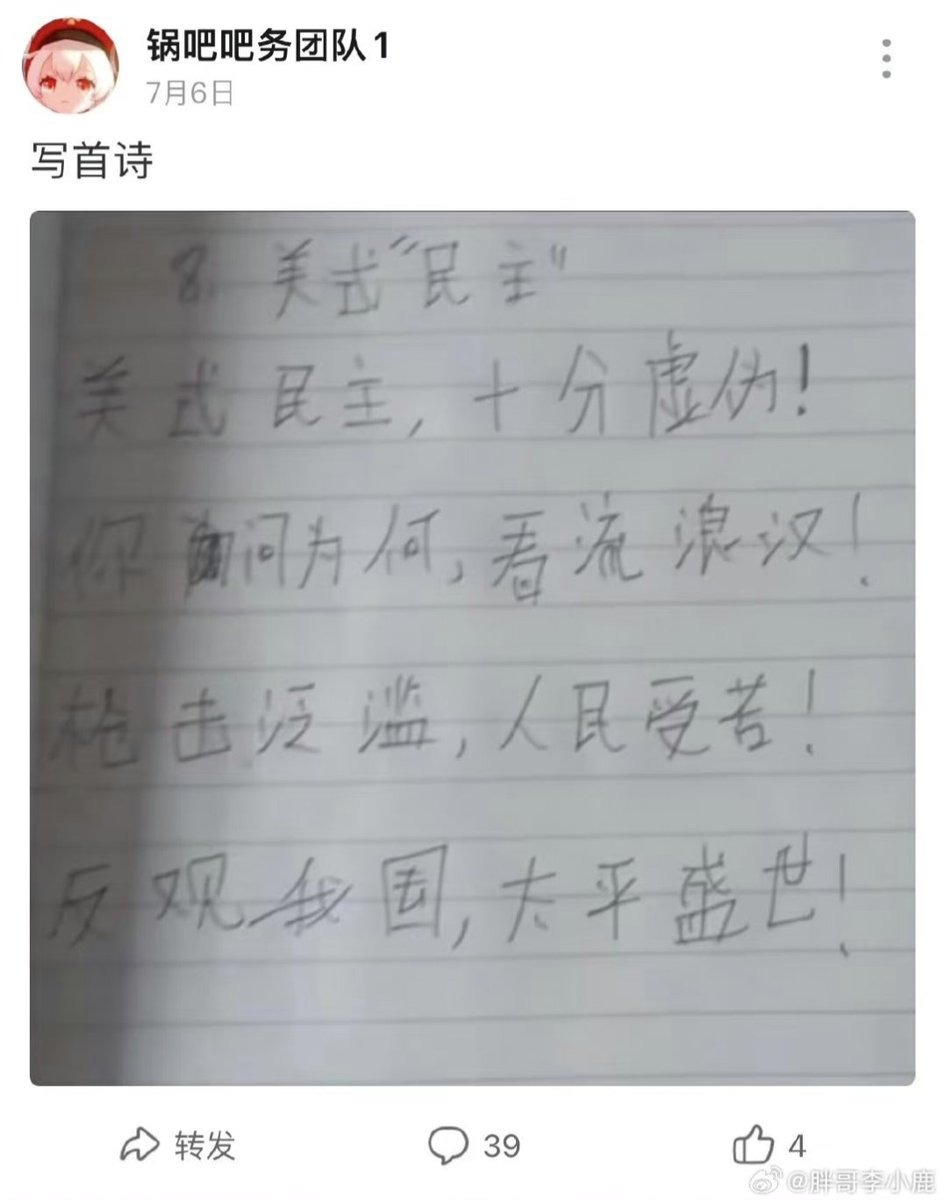 锅吧吧务团队1
7月6日
写首诗
8. 美式“民主”
美式民主,十分虚伪!
你问为何,看流浪汉!
枪击泛滥,人民受苦!
反观我国,太平盛世!
转发 39 4
@胖哥李小鹿